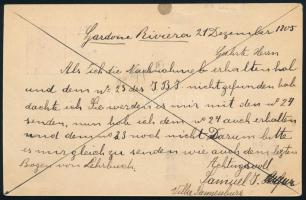 Gardone Riviera 21 Dezember 1905
Geehrt. Herrn
Als ich die Nachnahme erhalten hab
und dem No 23 des I B S nicht gefunden hab
dachte ich Sie werden es mir mit dem No 24
senden, nun hab ich dem No 24 auch erhalten
und dem No 23 noch nicht. Darum bitte
es mir gleich zu senden wie auch dem letzten
Bogen von Lehrbuch.
Achtungsvoll
Samuel J.
Villa